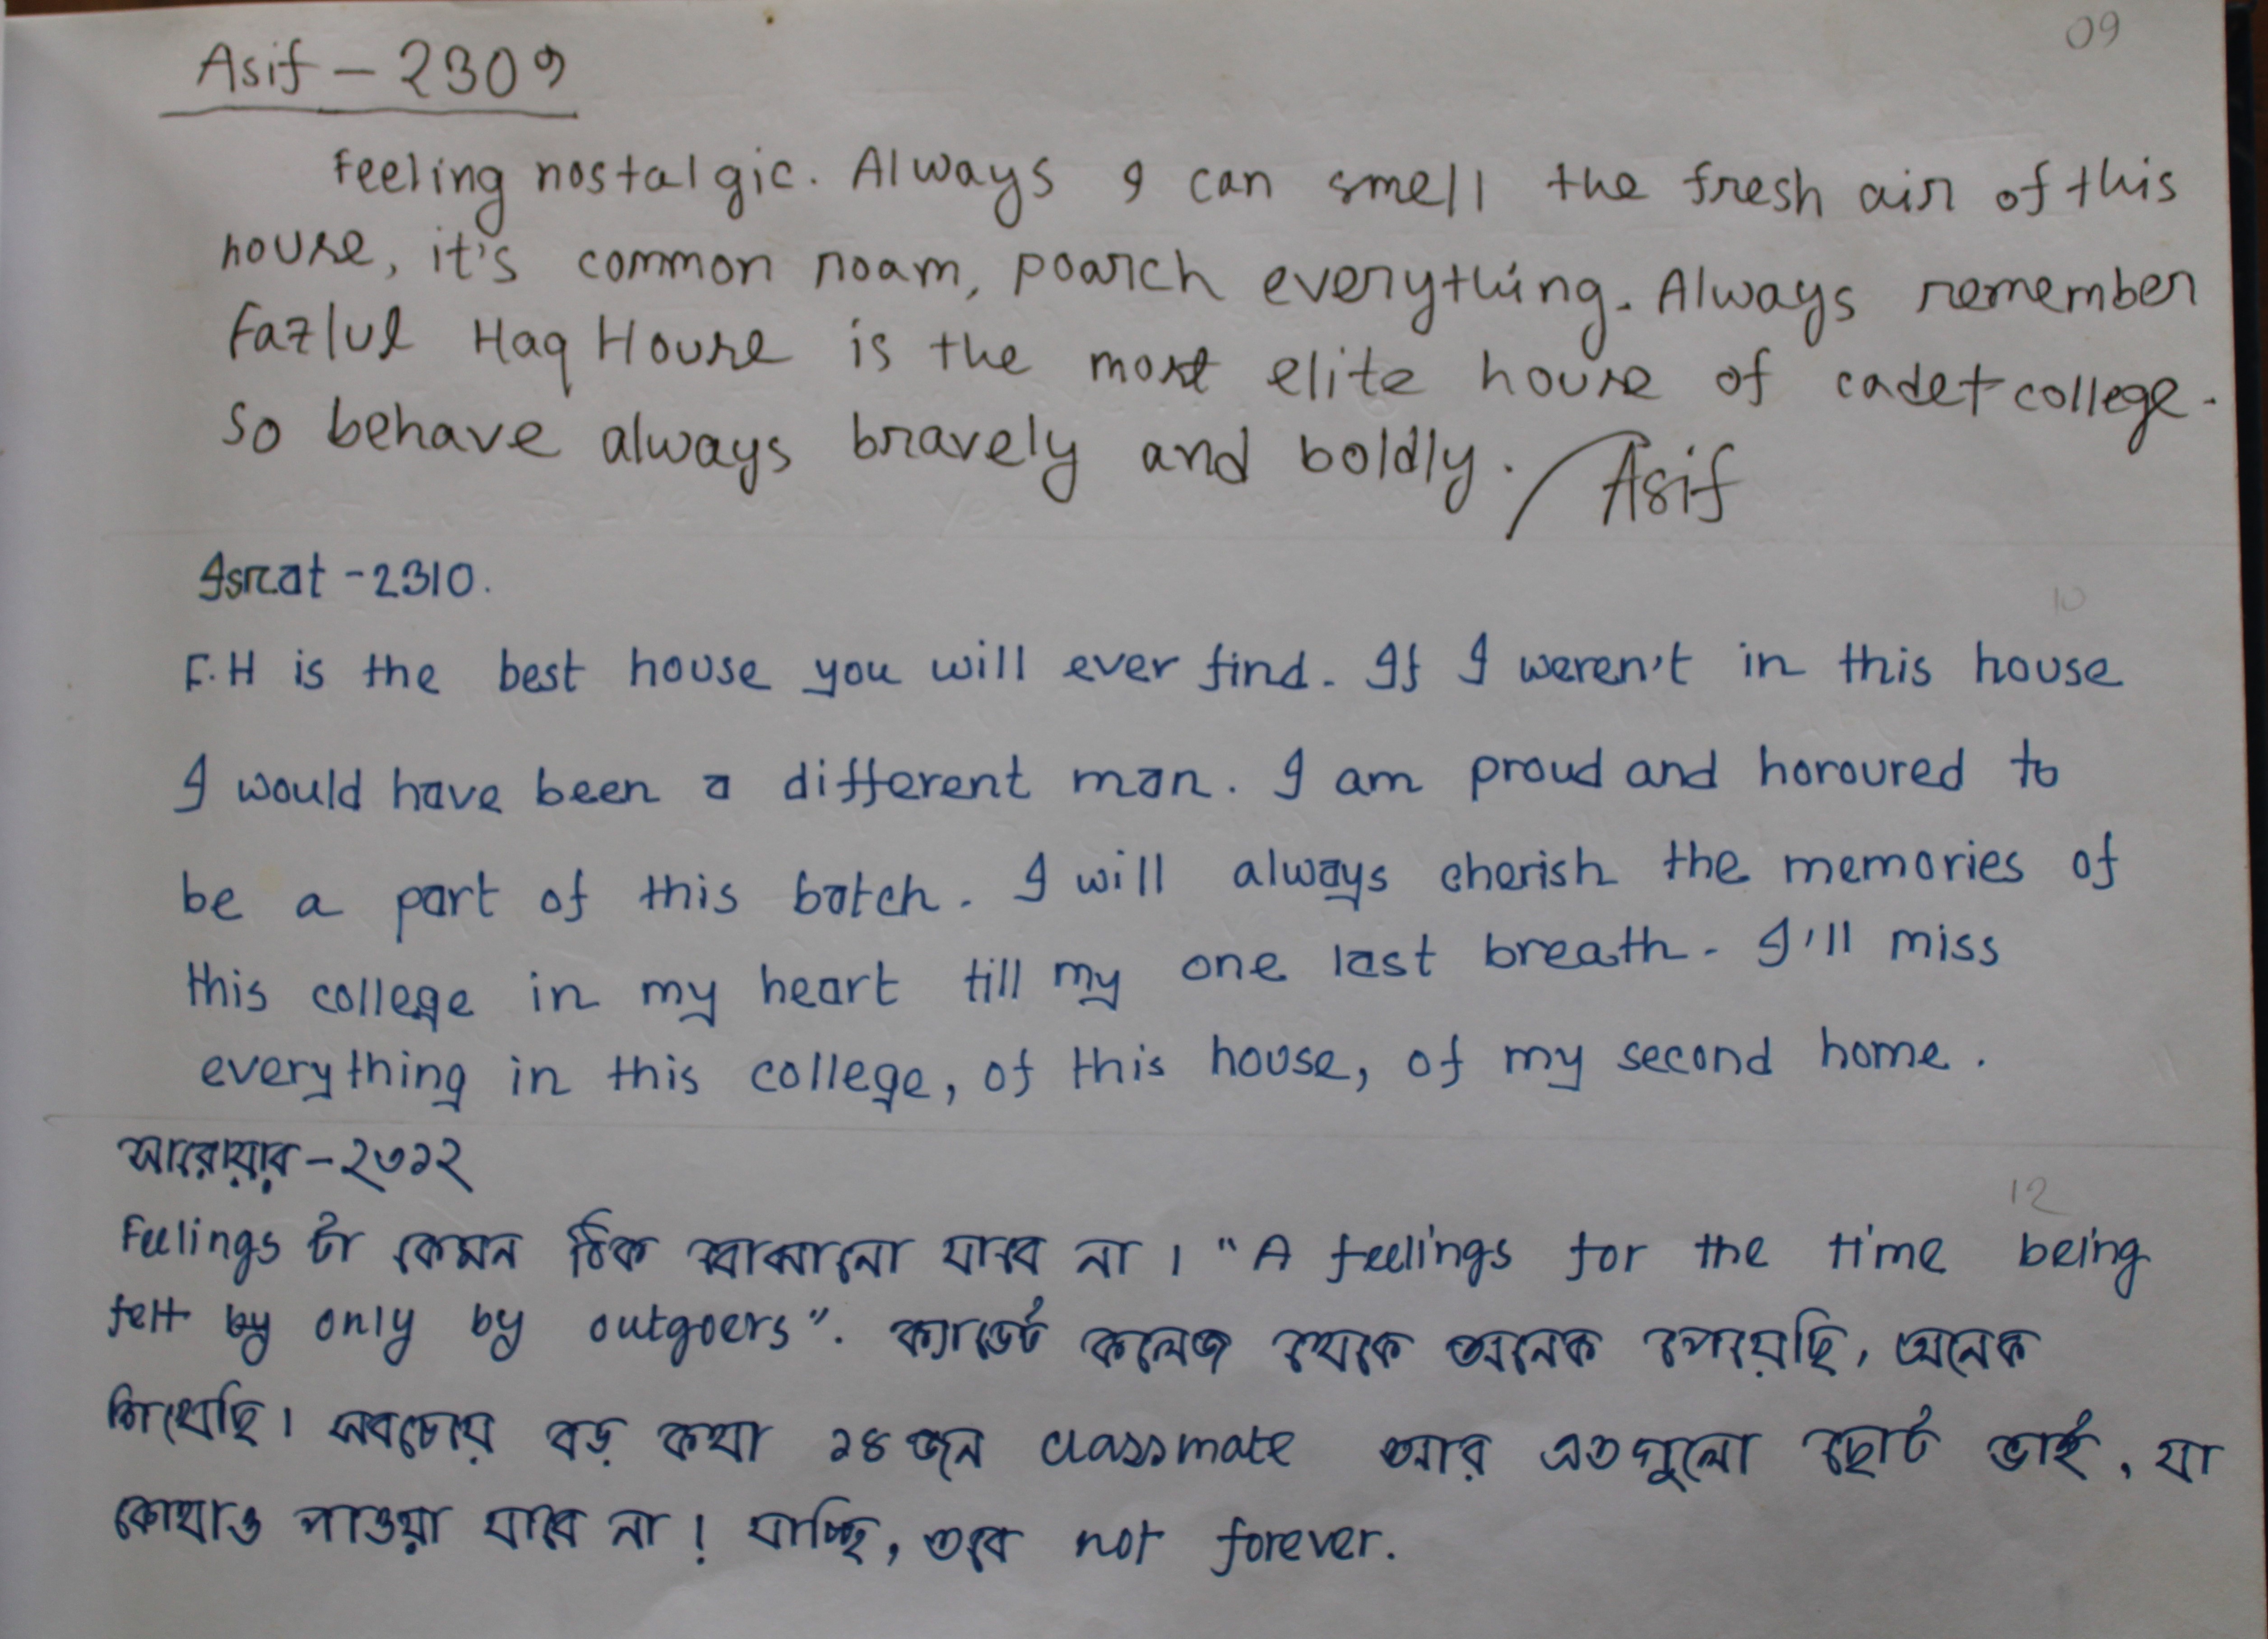 09
Asif - 2309
Feeling nostalgic. Always I can smell the fresh air of this
house, it's common roam, poarch everything. Always remember
Fazlul Haq House is the most elite house of cadet college.
So behave always bravely and boldly. Asif
Israt - 2310.
10
F.H is the best house you will ever find. If I weren't in this house
I would have been a different man. I am proud and horoured to
be a part of this batch. I will always cherish the memories of
this college in my heart till my one last breath. I'll miss
everything in this college, of this house, of my second home.
সারোয়ার - ২৩১২
12
Feelings টা কেমন ঠিক বোঝানো যাবে না। "A feelings for the time being
felt by only by outgoers". ক্যাডেট কলেজ থেকে অনেক পেয়েছি, অনেক
শিখেছি। সবচেয়ে বড় কথা ১৪ জন classmate আর এতগুলো ছোট ভাই, যা
কোথাও পাওয়া যাবে না! যাচ্ছি, তবে not forever.